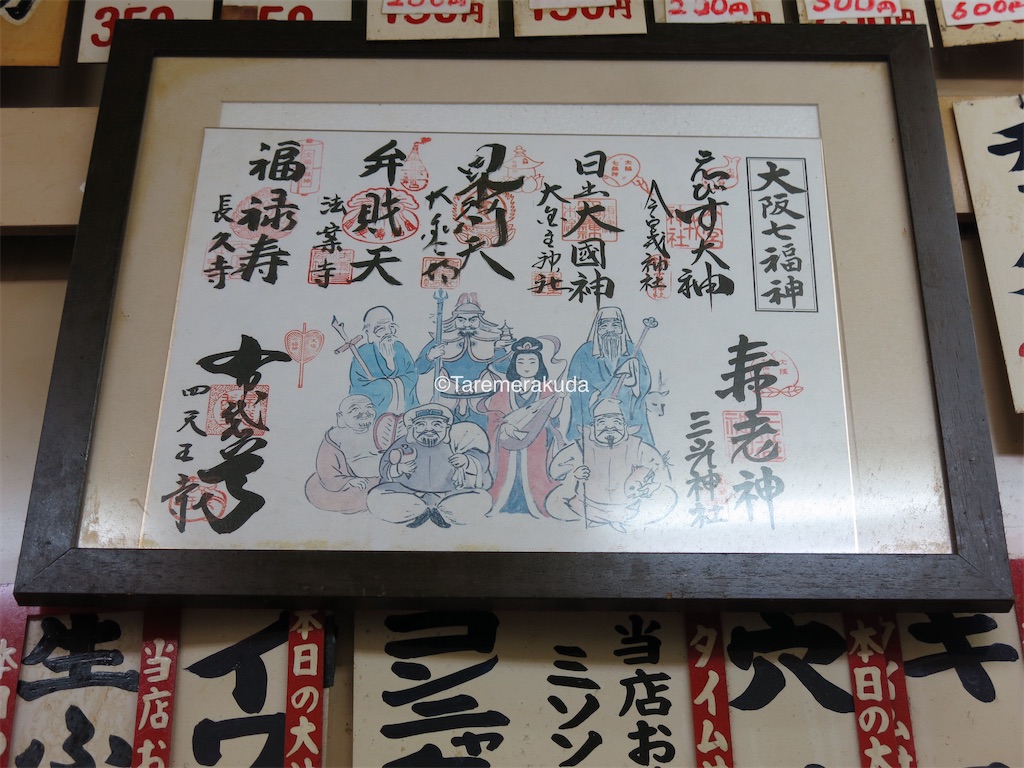 350
50
150円
150円
200円
500円
600円
大阪七福神
えびす大神
今宮戎神社
日出大國神
大国主神社
毘沙門天
大乗坊
弁財天
法案寺
福禄寿
長久寺
寿老神
三光神社
布袋尊
四天王寺
©Taremerakuda
本日
生ふ
当店お
イワ
本日の大
コンニャ
ミソソ
当店お
タイム
穴
本日の大
タイム
キ